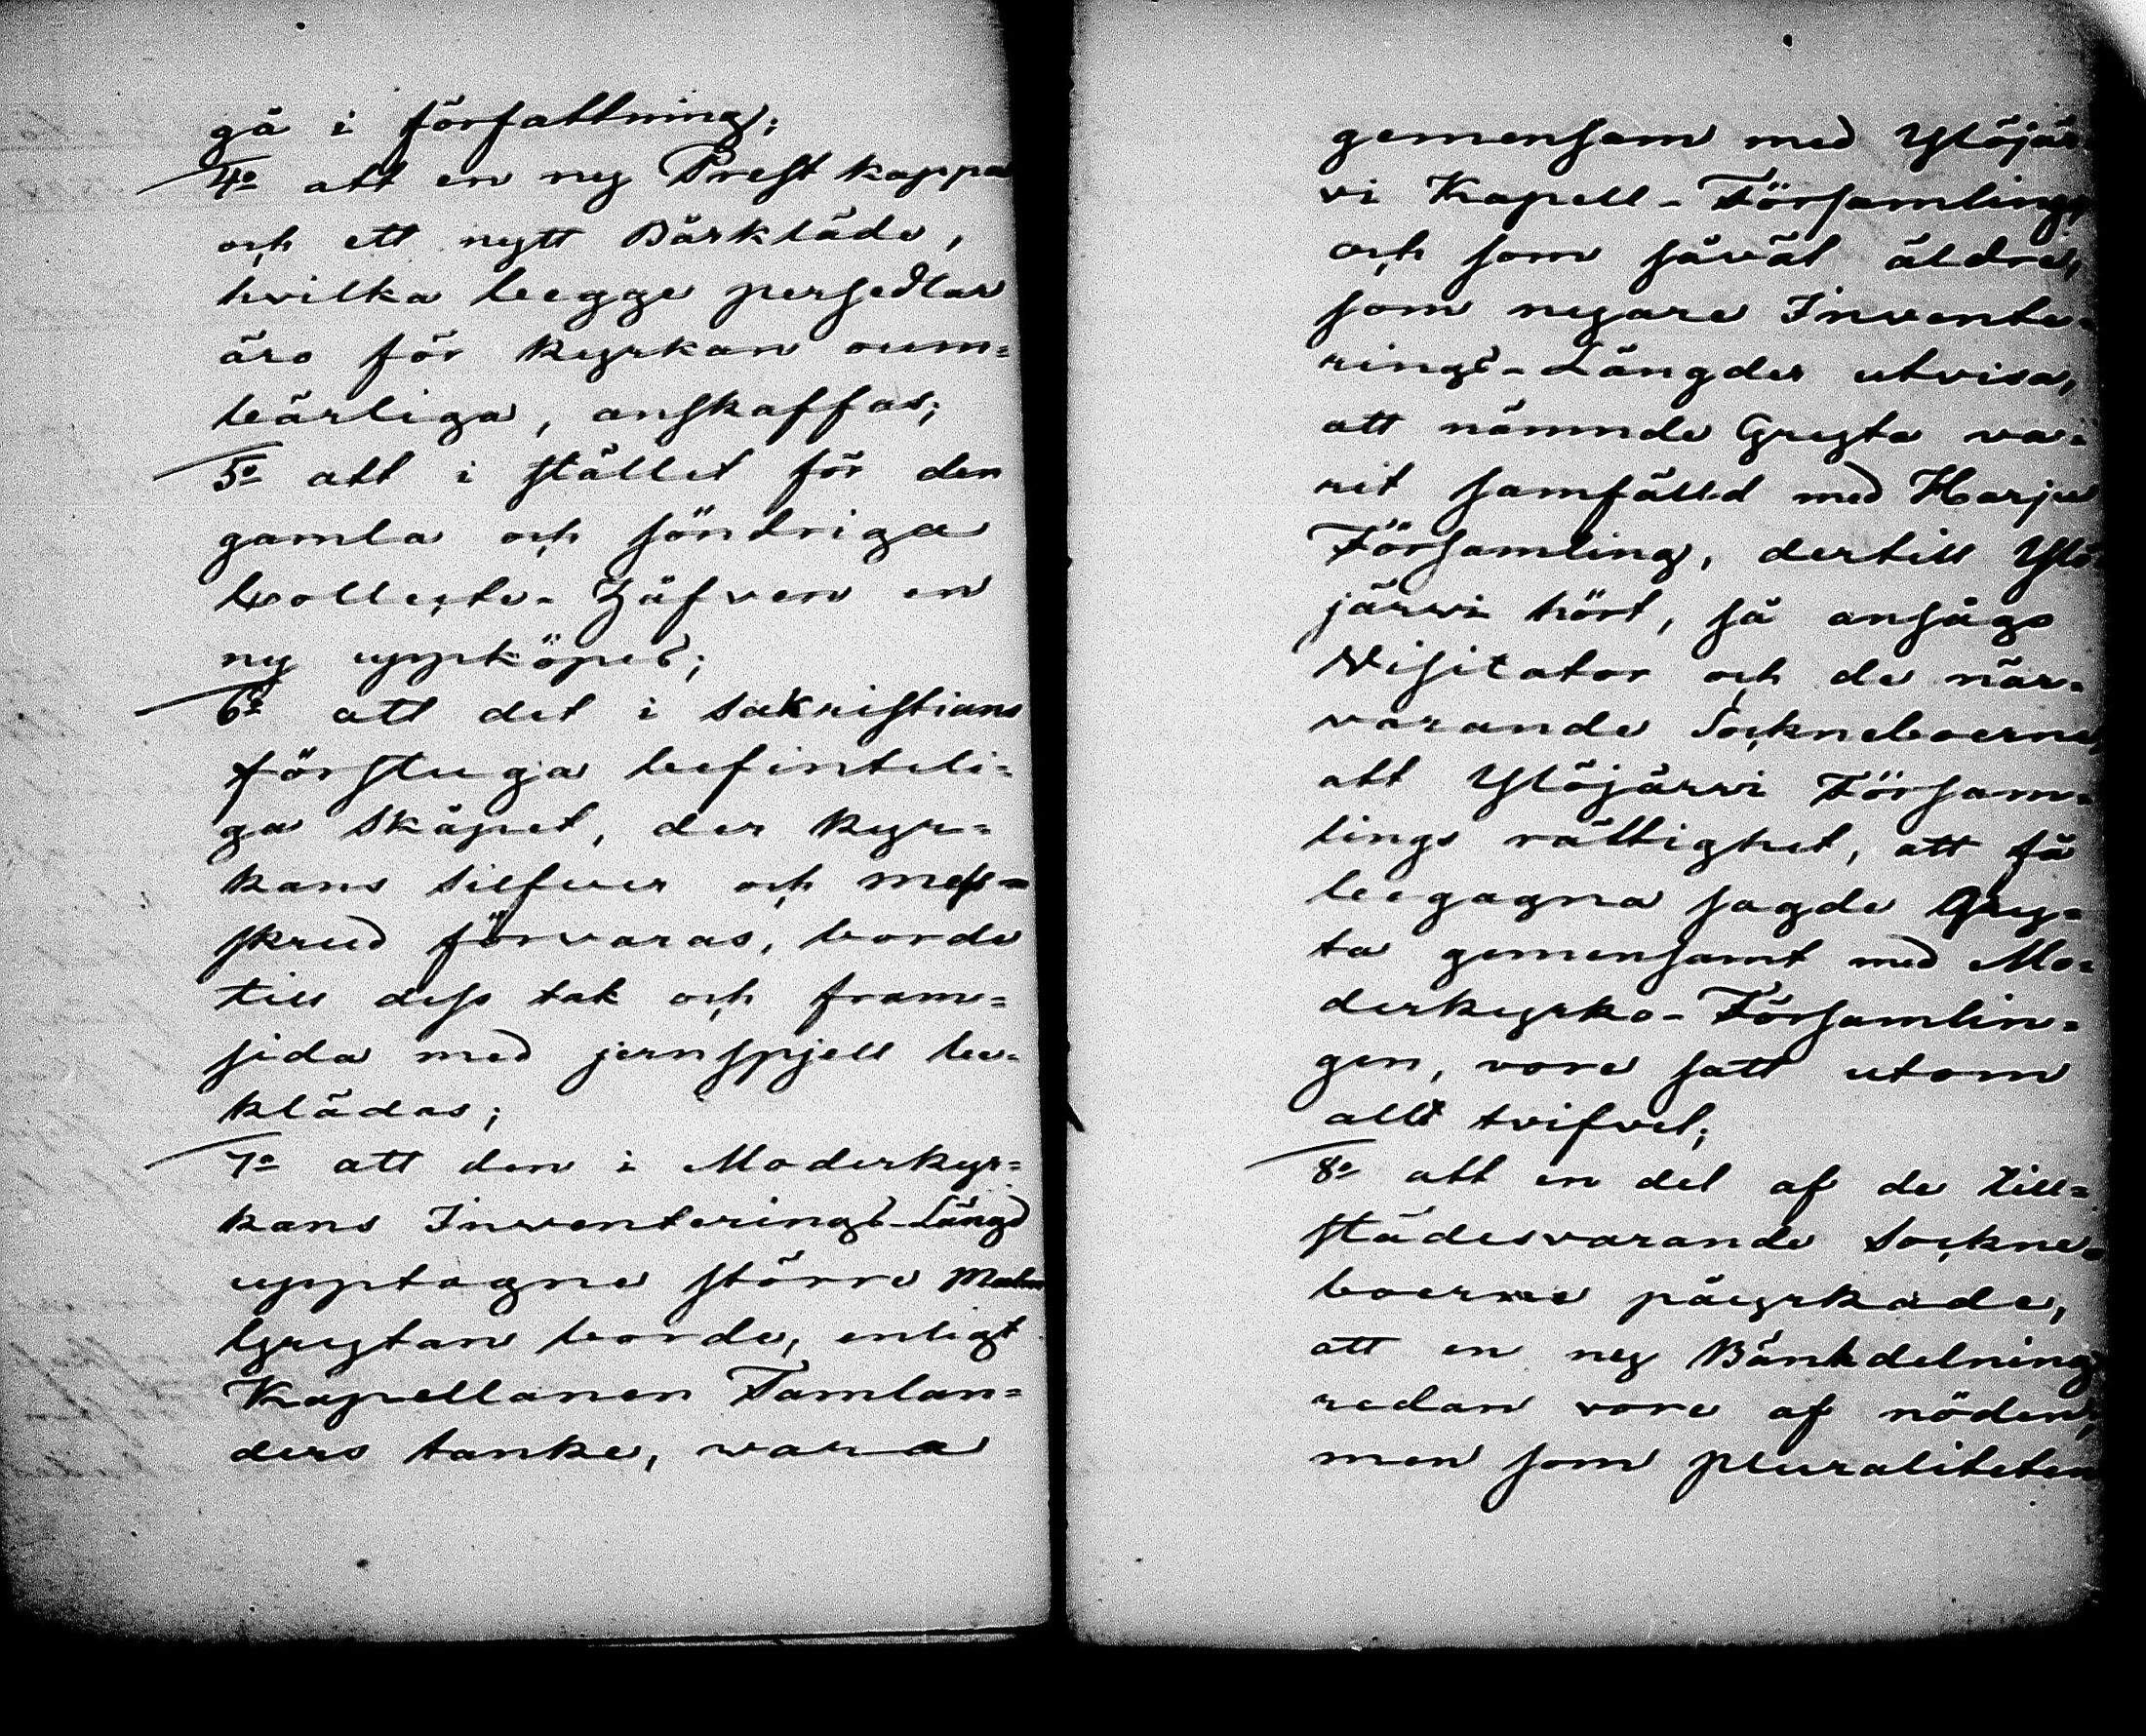 gå i författning;
4o att en ny Prest kappa
och ett nytt Bårkläde,
hvilka begge persedlar
äro för kyrkan oum=
bärliga, anskaffas;
5o att i stället för den
gamla och söndriga
Collecte-Håfven en
ny uppköpes;
6o att det i sakristians
förstuga befinteli=
ga skåpet, der kyr=
kans silfver och mess=
skrud förvaras, borde
till dess tak och fram=
sida med jernspjell be=
klädas;
7o att den i Moderkyr=
kans Inventerings-Längd
upptagne större Malm
Grytan borde, enligt
Kapellanen Tamlan=
ders tanke, vara
gemensam med Ylöjär=
vi Kapell-Församling,
och som såväl äldre,
som nyare Invente=
rings-Längder utvisa,
att nämnde Gryta va=
rit samfälld med Harju
Församling, dertill Ylö=
järvi hört, så ansågo
Visitator och de när=
varande Sockneboerne,
att Ylöjärvi Försam=
lings rättighet, att få
begagna sagde Gry=
ta gemensamt med Mo=
derkyrko-Församlin=
gen, vore satt utom
allt tvifvel;
8o att en del af de till=
städesvarande Sockne=
boerne påyrkade,
att en ny Bänkdelning
redan vore af nöden;
men som pluraliteten